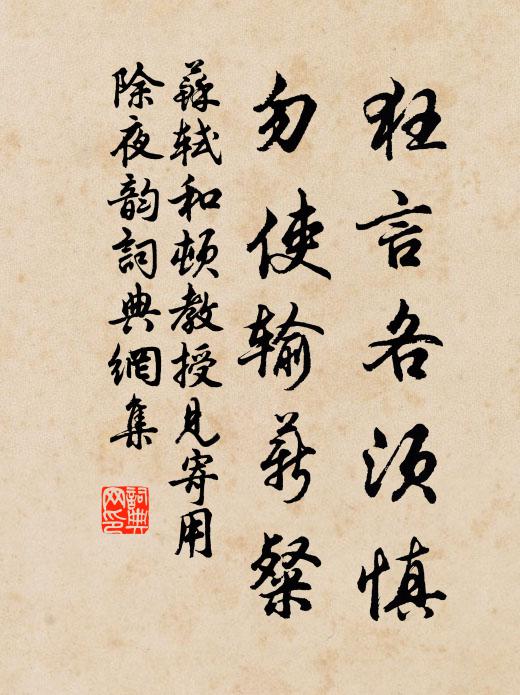 狂言各須慎
勿使輸薪粲
蘇軾和頓教授見寄用
除夜韵詞典網集
詞典网印